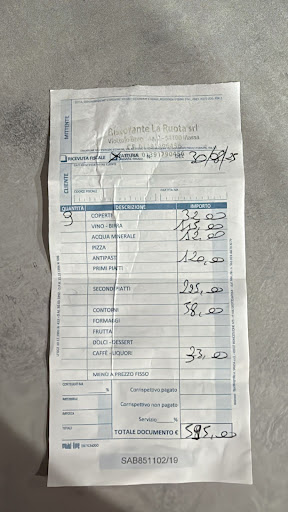 MITTENTE
Ristorante La Ruota srl
RICEVUTA FISCALE X FATTURA 30/08/25
CLIENTE
CODICE FISCALE PARTITA IVA
QUANTITÀ DESCRIZIONE IMPORTO
COPERTI 32,00
VINO - BIRRA
ACQUA MINERALE 12,00
PIZZA
ANTIPASTI 120,00
PRIMI PIATTI
SECONDI PIATTI 225,00
CONTORNI 58,00
FORMAGGI
FRUTTA
DOLCI - DESSERT
CAFFÈ - LIQUORI 33,00
MENÙ A PREZZO FISSO
% Corrispettivo pagato
Corrispettivo non pagato
IMPOSTA Servizio %
TOTALE TOTALE DOCUMENTO € 595,00
SAB851102/19